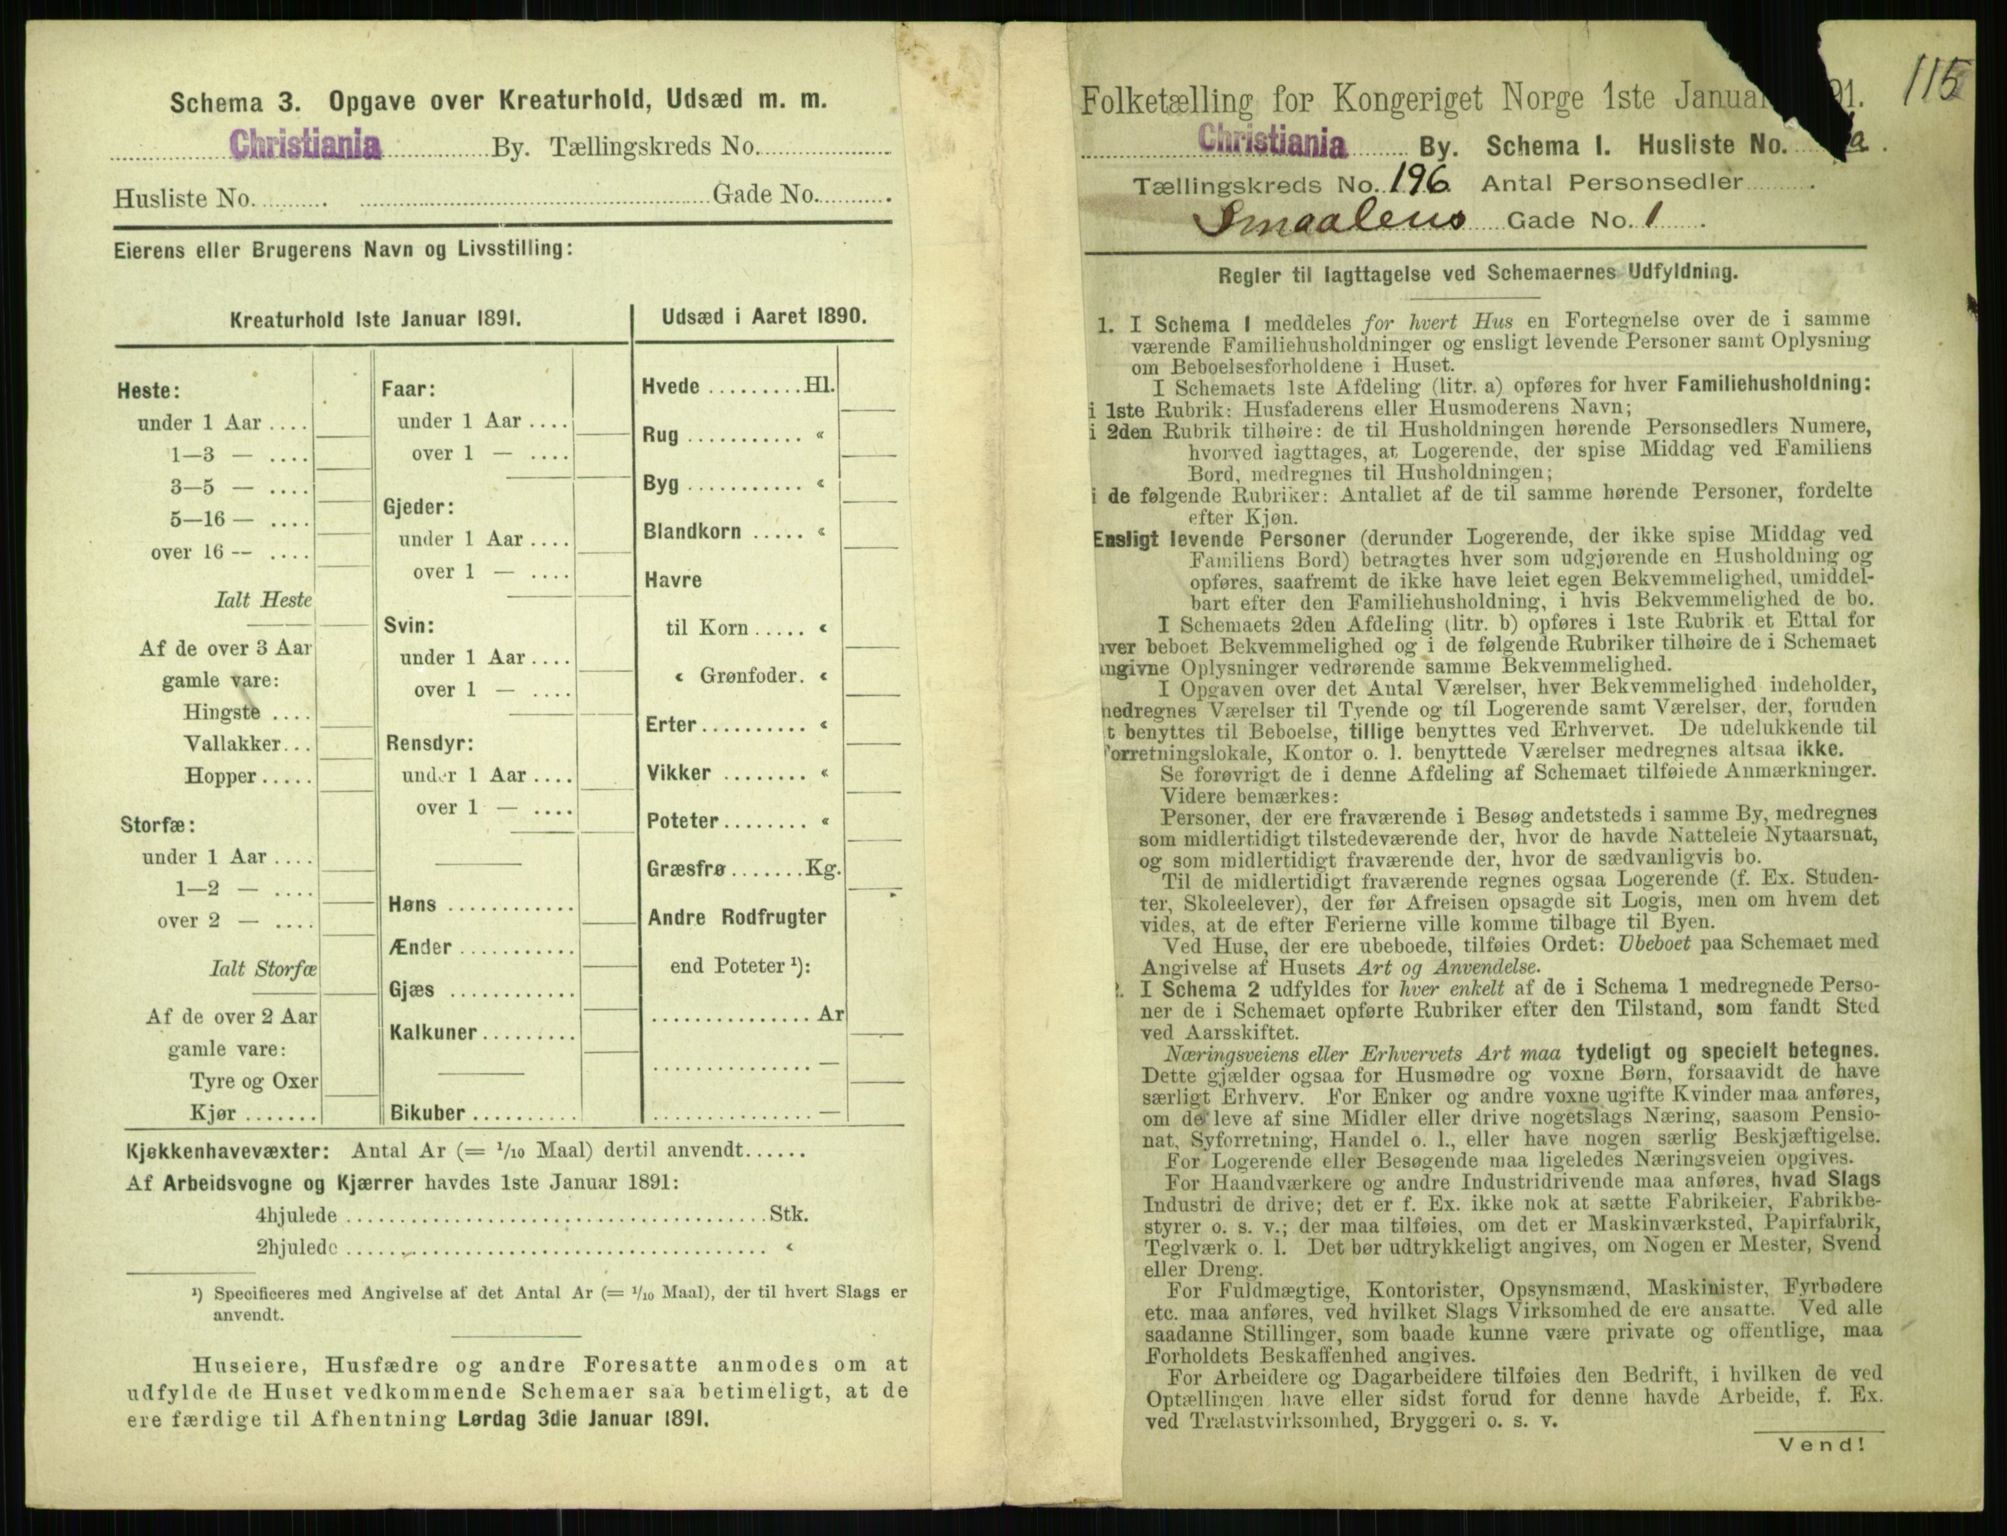 Schema 3. Opgave over Kreaturhold, Udsæd m. m.
Christiania By. Tællingskreds No.
Husliste No. Gade No.
Eierens eller Brugerens Navn og Livsstilling:
Kreaturhold 1ste Januar 1891.
Heste:
under 1 Aar ....
1—3 — ....
3—5 — ....
5—16 — ....
over 16 — ....
Ialt Heste
Af de over 3 Aar
gamle vare:
Hingste ....
Vallakker...
Hopper .....
Storfæ:
under 1 Aar ....
1—2 — ....
over 2 — ....
Ialt Storfæ
Af de over 2 Aar
gamle vare:
Tyre og Oxer
Kjør .......
Faar:
under 1 Aar ....
over 1 — ....
Gjeder:
under 1 Aar ....
over 1 — ....
Svin:
under 1 Aar ....
over 1 — ....
Rensdyr:
under 1 Aar ....
over 1 — ....
Høns ............
Ænder ...........
Gjæs ............
Kalkuner.........
Bikuber ..........
Udsæd i Aaret 1890.
Hvede .........Hl.
Rug ........... «
Byg ........... «
Blandkorn ..... «
Havre
til Korn ..... «
« Grønfoder. «
Erter.......... «
Vikker ........ «
Poteter........ «
Græsfrø .......Kg.
Andre Rodfrugter
end Poteter ¹):
............... Ar
............... —
............... —
Kjøkkenhavevæxter: Antal Ar (= 1/10 Maal) dertil anvendt......
Af Arbeidsvogne og Kjærrer havdes 1ste Januar 1891:
4hjulede ........................................Stk.
2hjulede ........................................ «
¹) Specificeres med Angivelse af det Antal Ar (= 1/10 Maal), der til hvert Slags er
anvendt.
Huseiere, Husfædre og andre Foresatte anmodes om at
udfylde de Huset vedkommende Schemaer saa betimeligt, at de
ere færdige til Afhentning Lørdag 3die Januar 1891.
115
Folketælling for Kongeriget Norge 1ste Januar 91.
Christiania By. Schema 1. Husliste No. a.
Tællingskreds No. 196 Antal Personsedler .
Smaalens Gade No. 1 .
Regler til Iagttagelse ved Schemaernes Udfyldning.
1. I Schema 1 meddeles for hvert Hus en Fortegnelse over de i samme
værende Familiehusholdninger og ensligt levende Personer samt Oplysning
om Beboelsesforholdene i Huset.
I Schemaets 1ste Afdeling (litr. a) opføres for hver Familiehusholdning:
i 1ste Rubrik: Husfaderens eller Husmoderens Navn;
i 2den Rubrik tilhøire: de til Husholdningen hørende Personsedlers Numere,
hvorved iagttages, at Logerende, der spise Middag ved Familiens
Bord, medregnes til Husholdningen;
i de følgende Rubriker: Antallet af de til samme hørende Personer, fordelte
efter Kjøn.
Ensligt levende Personer (derunder Logerende, der ikke spise Middag ved
Familiens Bord) betragtes hver som udgjørende en Husholdning og
opføres, saafremt de ikke have leiet egen Bekvemmelighed, umiddel-
bart efter den Familiehusholdning, i hvis Bekvemmelighed de bo.
I Schemaets 2den Afdeling (litr. b) opføres i 1ste Rubrik et Ettal for
hver beboet Bekvemmelighed og i de følgende Rubriker tilhøire de i Schemaet
angivne Oplysninger vedrørende samme Bekvemmelighed.
I Opgaven over det Antal Værelser, hver Bekvemmelighed indeholder,
medregnes Værelser til Tyende og til Logerende samt Værelser, der, foruden
t benyttes til Beboelse, tillige benyttes ved Erhvervet. De udelukkende til
Forretningslokale, Kontor o. l. benyttede Værelser medregnes altsaa ikke.
Se forøvrigt de i denne Afdeling af Schemaet tilføiede Anmærkninger.
Videre bemærkes:
Personer, der ere fraværende i Besøg andetsteds i samme By, medregnes
som midlertidigt tilstedeværende der, hvor de havde Natteleie Nytaarsnat,
og som midlertidigt fraværende der, hvor de sædvanligvis bo.
Til de midlertidigt fraværende regnes ogsaa Logerende (f. Ex. Studen-
ter, Skoleelever), der før Afreisen opsagde sit Logis, men om hvem det
vides, at de efter Ferierne ville komme tilbage til Byen.
Ved Huse, der ere ubeboede, tilføies Ordet: Ubeboet paa Schemaet med
Angivelse af Husets Art og Anvendelse.
2. I Schema 2 udfyldes for hver enkelt af de i Schema 1 medregnede Perso-
ner de i Schemaet opførte Rubriker efter den Tilstand, som fandt Sted
ved Aarsskiftet.
Næringsveiens eller Erhvervets Art maa tydeligt og specielt betegnes.
Dette gjælder ogsaa for Husmødre og voxne Børn, forsaavidt de have
særligt Erhverv. For Enker og andre voxne ugifte Kvinder maa anføres,
om de leve af sine Midler eller drive nogetslags Næring, saasom Pensio-
nat, Syforretning, Handel o. l., eller have nogen særlig Beskjæftigelse.
For Logerende eller Besøgende maa ligeledes Næringsveien opgives.
For Haandværkere og andre Industridrivende maa anføres, hvad Slags
Industri de drive; det er f. Ex. ikke nok at sætte Fabrikeier, Fabrikbe-
styrer o. s. v.; der maa tilføies, om det er Maskinværksted, Papirfabrik,
Teglværk o. l. Det bør udtrykkeligt angives, om Nogen er Mester, Svend
eller Dreng.
For Fuldmægtige, Kontorister, Opsynsmænd, Maskinister, Fyrbødere
etc. maa anføres, ved hvilket Slags Virksomhed de ere ansatte. Ved alle
saadanne Stillinger, som baade kunne være private og offentlige, maa
Forholdets Beskaffenhed angives.
For Arbeidere og Dagarbeidere tilføies den Bedrift, i hvilken de ved
Optællingen have eller sidst forud for denne havde Arbeide, f. Ex.
ved Trælastvirksomhed, Bryggeri o. s. v.
Vend!